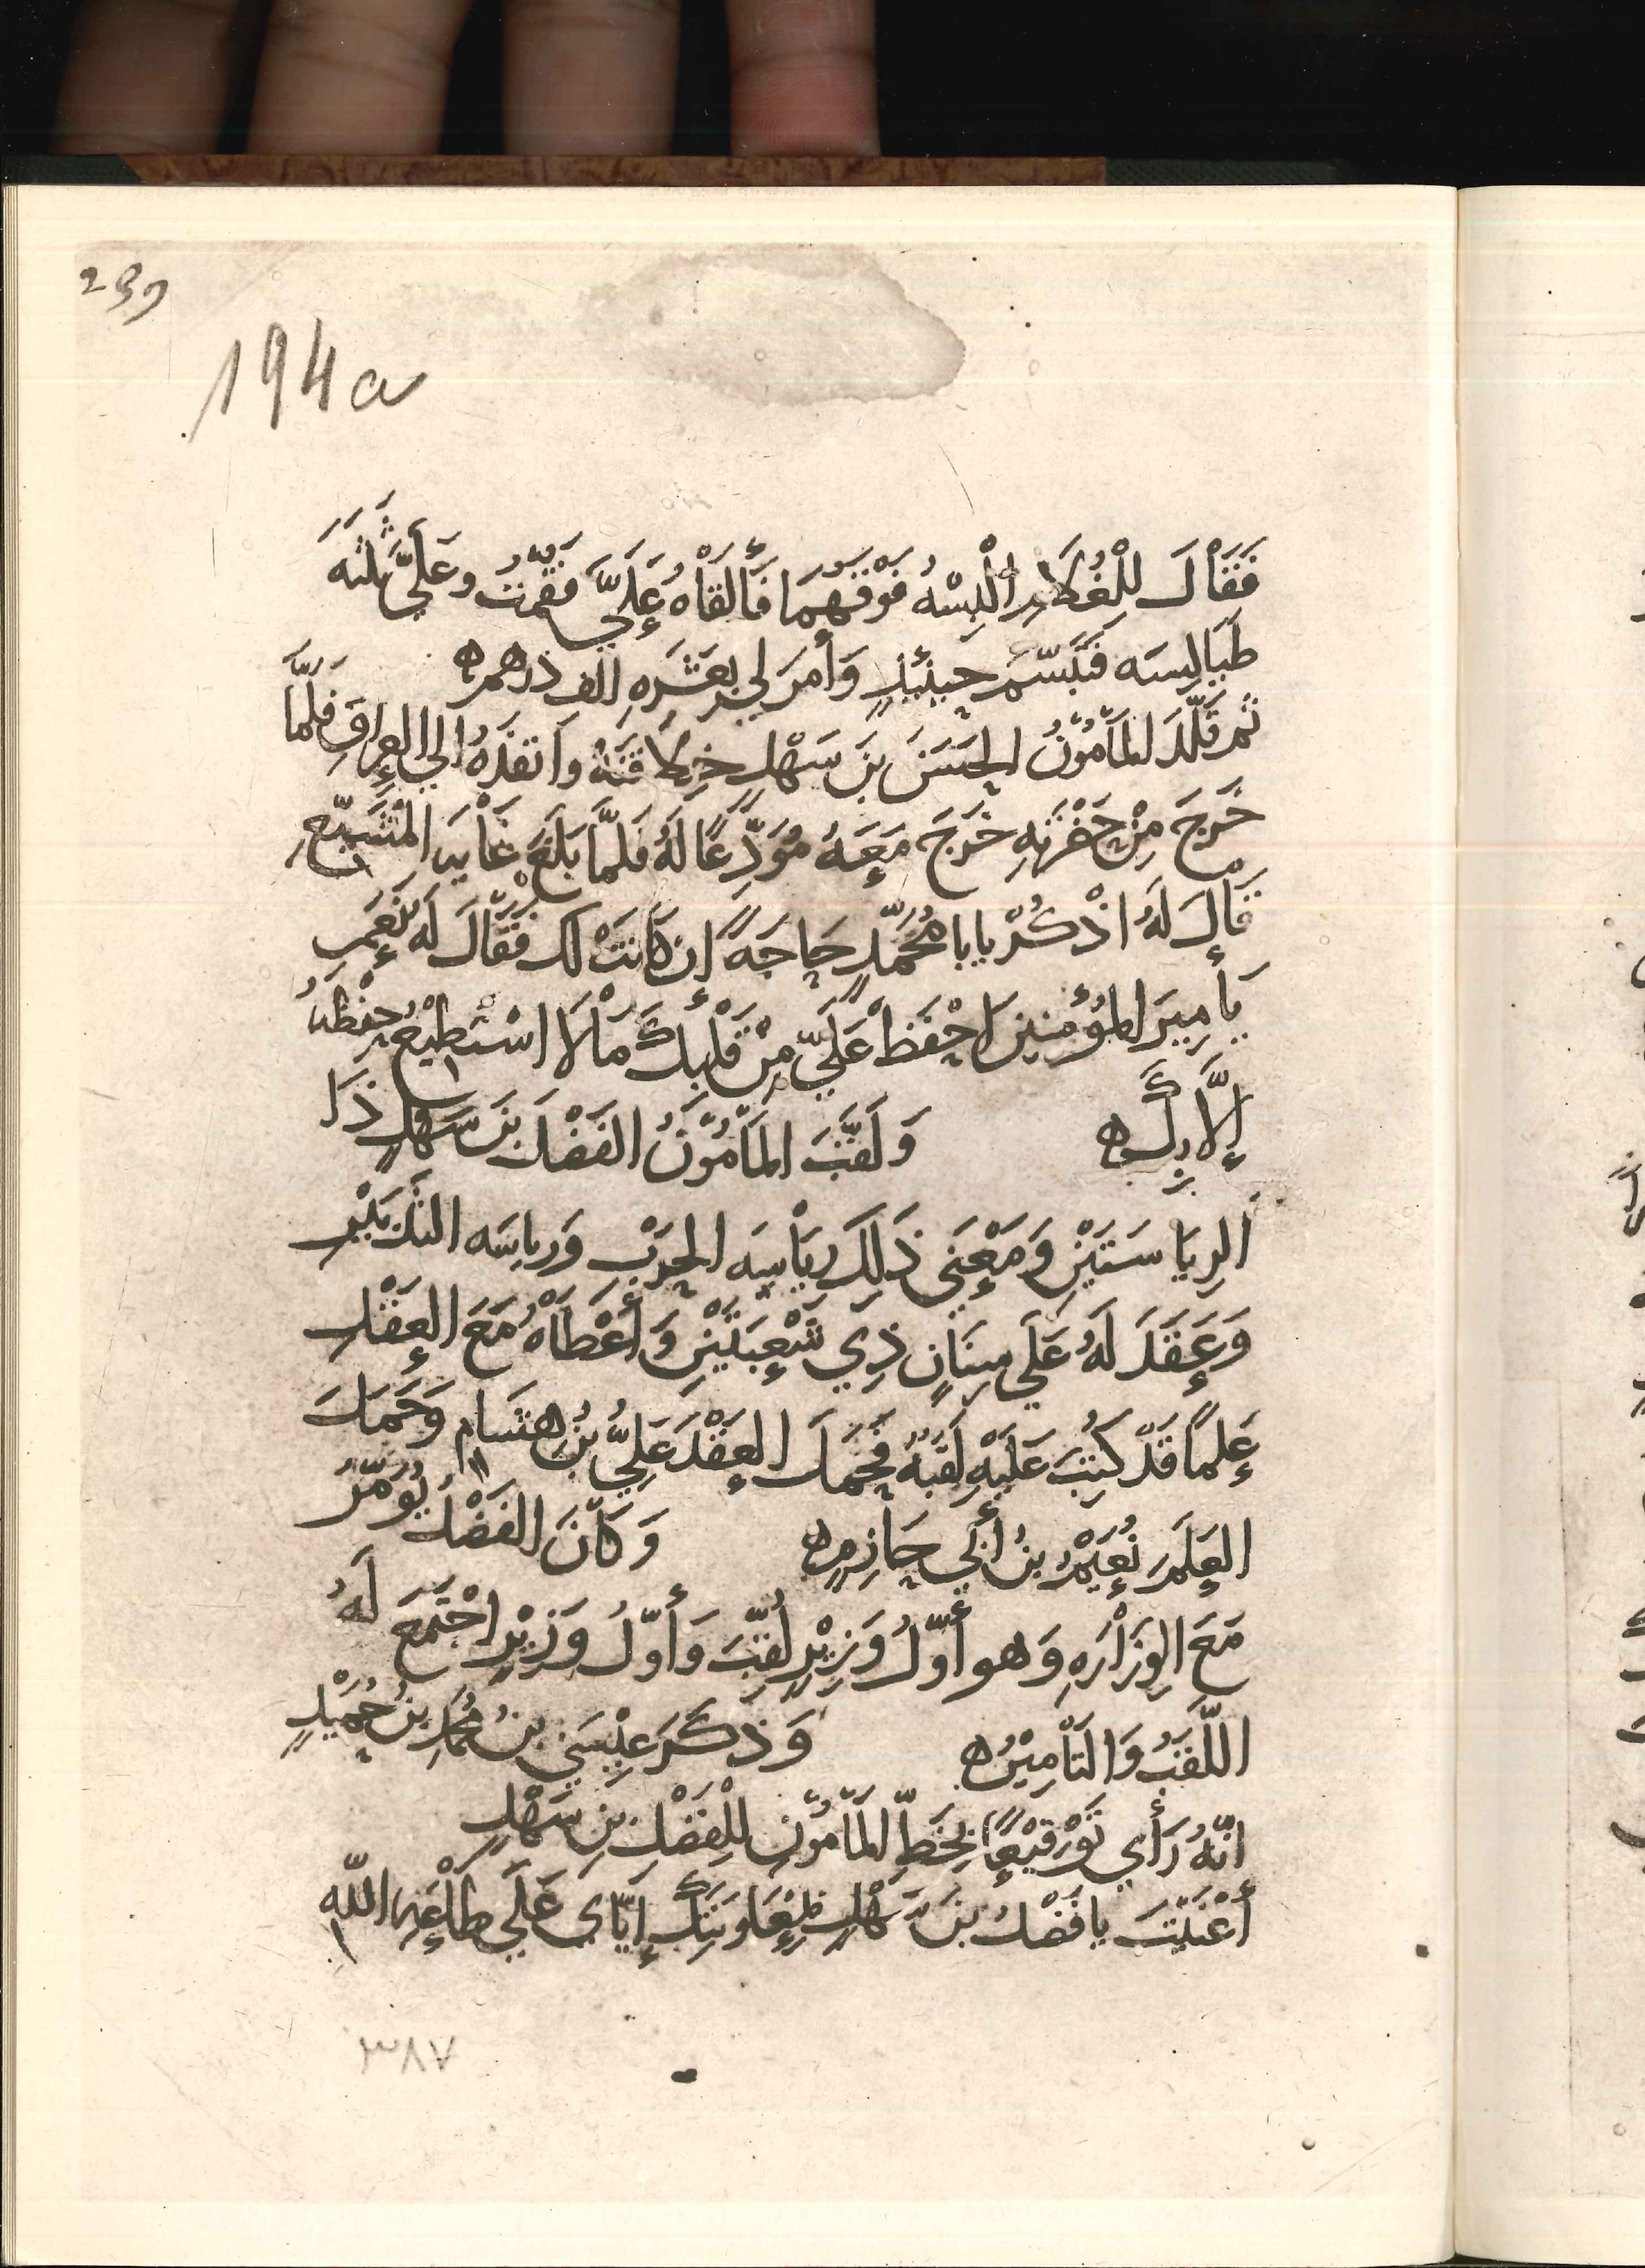 239
194a
فَقَالَ لِلْغُلَامِ أَلْبِسْهُ فَوْقَهُمَا فَأَلْقَاهُ عَلَيَّ فَقُمْتُ وَعَلَيَّ ثَلَثَه
طَيَالِسَه فَتَبَسَّمَ حِينَئِذٍ وَأَمَرَ لِي بِعَشَرَهِ الف دِرْهم ه
ثم قَلَّدَ المَأمُوْنُ الحَسَنَ بنَ سَهْلٍ خِلَافَتَهُ وَأَنْفَذَهُ الي العِرَاقِ فَلَمَّا
خَرَجَ مِنْ حَضْرَتِهِ خَرَجَ مَعَهُ مُوَدِّعًا لَهُ فَلَمَّا بَلَغَ غَايَه المُشَيِّعِ
قَالَ لَهُ اذْكُرْ يابا مُحَمَّدٍ حَاجَهً إن كَانَتْ لَك فَقَالَ لَه نَعَم
يَأمِيرَ المُؤْمِنِينَ احْفَظْ عَلَيَّ مِنْ قَلْبِكَ مَا لَا اسْتَطِيْعُ حِفْظَهُ
إلَّا بِكَ ه وَلَقَّبَ المَأمُوْنُ الفَضْلَ بنَ سَهْلٍ ذَا
الرِيَاسَتَيْنِ وَمَعْنَى ذَلِكَ رِيَاسَه الحَرْبِ وَرِياسَه التَدْبَيْرِ
وَعَقَدَ لَهُ عَلَي سِنَانٍ ذِي شُعْبَتَيْنِ وَأَعْطَاهُ مَعَ العَقْدِ
عَلَمًا قَدْ كُتِبَ عَلَيْهِ لَقَبُهُ فَحَمَلَ العَقْدَ عَلِيُّ بنُ هشَام وَحَمَلَ
العَلَمَ نُعَيْمُ بنُ أبي حَازِمٍ ه وَكَانَ الفَضْلُ يُؤَمَّرُ
مَعَ الوِزَارَهِ وَهو أَوَّلُ وَزِيْرٍ لُقِّبَ وَأَوَّلُ وَزِيْرٍ اجْتَمَعَ لَهُ
اللَّقَبُ وَالتَأمِيْرُ ه وَذَكَرَ عِيْسَى بنُ مُحَمَّد بنِ حُمَيْدٍ
انَّهُ رَأَي تَوْقِيْعًا بِخَطِّ المَأمُوْنِ لِلْفَضْلِ بنِ سَهْلٍ
أَغْنَيْتَ يا فَضْلُ بنَ سَهْلٍ بِمُعَاوَنَتِكَ إيَّاي عَلَي طَاعَهِ اللَّه
٣٨٧